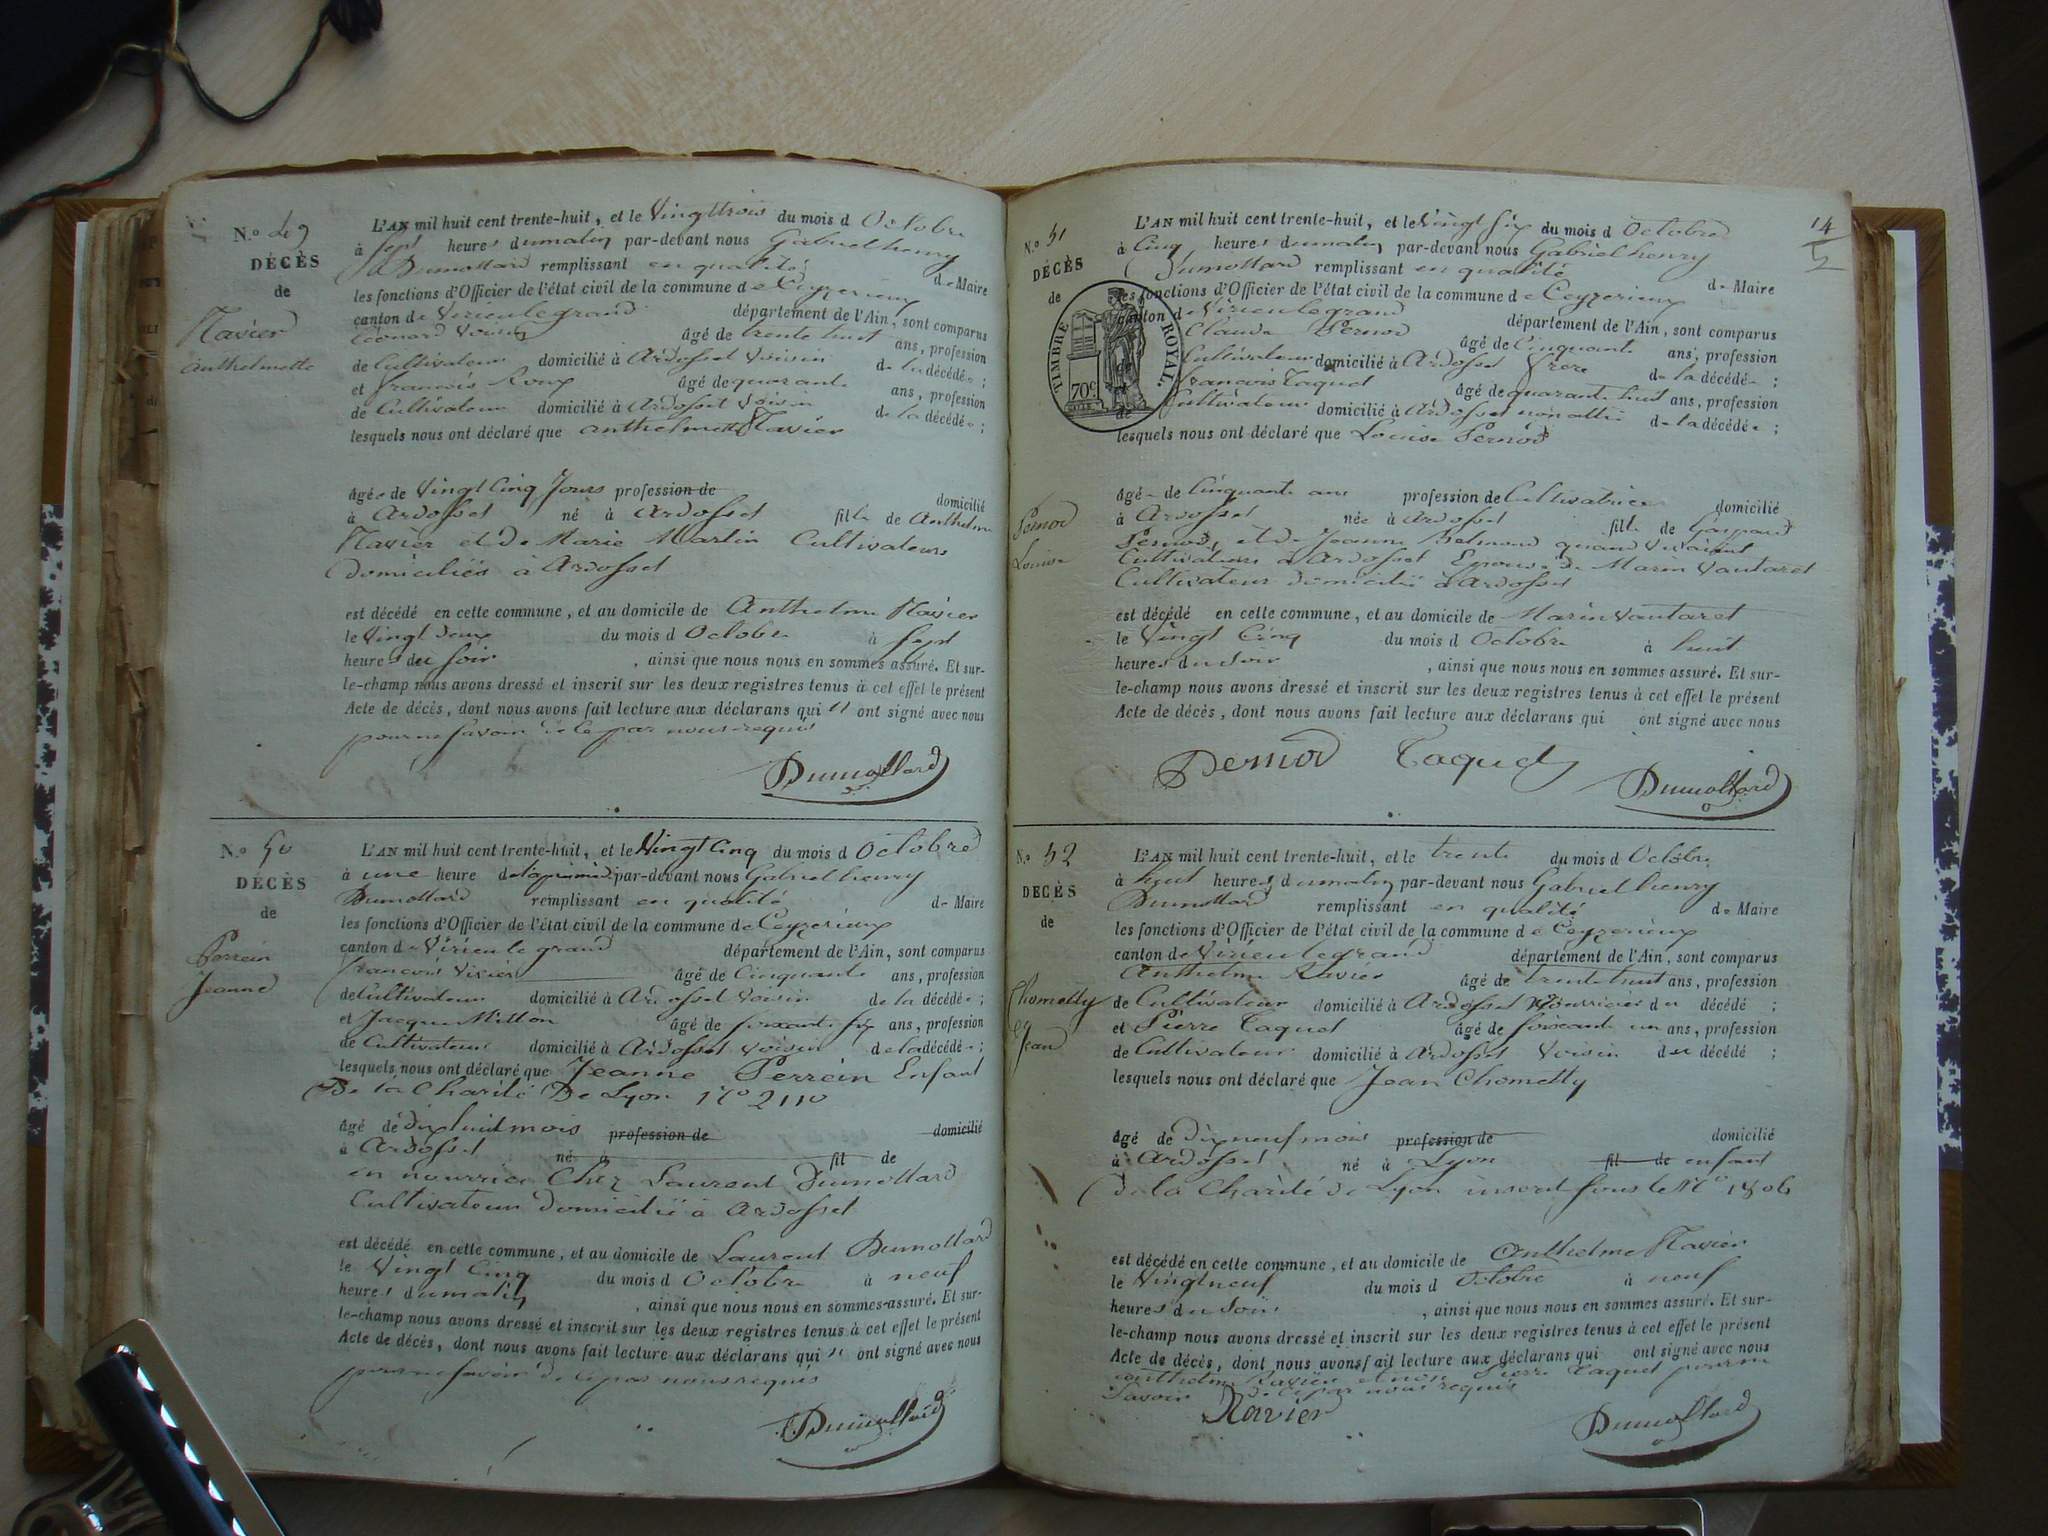 N.º 49
DÉCÈS
de
Ravier
Anthelmette
L'AN mil huit cent trente-huit, et le Vingttrois du mois d Octobre
à sept heures du matin par-devant nous Gabriel henry
Dumollard remplissant en qualité de Maire
les fonctions d'Officier de l'état civil de la commune de Ceyzerieux
canton de Virieulegrand département de l'Ain, sont comparus
Léonard Voisin âgé de trente huit ans, profession
de Cultivateur domicilié à Ardosset Voisin de la décédée ;
et francois Roux âgé de quarante ans, profession
de Cultivateur domicilié à Ardosset Voisin de la décédée ;
lesquels nous ont déclaré que anthelmette Ravier
âgée de Vingt Cinq Jours profession de domicilié
à Ardosset né à Ardosset fille de Anthelme
Ravier et de Marie Martin Cultivateurs
domiciliés à Ardosset
est décédé en cette commune, et au domicile de Anthelme Ravier
le Vingt deux du mois d Octobre à sept
heures du soir , ainsi que nous nous en sommes assuré. Et sur-
le-champ nous avons dressé et inscrit sur les deux registres tenus à cet effet le présent
Acte de décès, dont nous avons fait lecture aux déclarans qui n' ont signé avec nous
pour ne savoir de ce par nous requis
Dumollard
N.º 50
DÉCÈS
de
Perrein
Jeanne
L'AN mil huit cent trente-huit, et le Vingt Cinq du mois d Octobre
à une heure par-devant nous Gabriel henry
Dumollard remplissant en qualité de Maire
les fonctions d'Officier de l'état civil de la commune de Ceyzerieux
canton de Virieu le grand département de l'Ain, sont comparus
francois Vivier âgé de Cinquante ans, profession
de Cultivateur domicilié à Ardosset Voisin de la décédée ;
et Jacque Millon âgé de soixante six ans, profession
de Cultivateur domicilié à Ardosset Voisin de la décédée ;
lesquels nous ont déclaré que Jeanne Perrein Enfant
De la Charité De Lyon N.º 2110
âgé de dix huit mois profession de domicilié
à Ardosset né à fil de
en nourrice Chez Laurent Dumollard
Cultivateur domicilié à Ardosset
est décédé en cette commune, et au domicile de Laurent Dumollard
le Vingt Cinq du mois d Octobre à neuf
heures du matin , ainsi que nous nous en sommes assuré. Et sur-
le-champ nous avons dressé et inscrit sur les deux registres tenus à cet effet le présent
Acte de décès, dont nous avons fait lecture aux déclarans qui n' ont signé avec nous
pour ne savoir de ce par nous requis
Dumollard
14
N.º 51
DÉCÈS
de
TIMBRE ROYAL.
70c
Pernod
Louise
L'AN mil huit cent trente-huit, et le Vingt Six du mois d Octobre
à Cinq heures du matin par-devant nous Gabriel henry
Dumollard remplissant en qualité de Maire
les fonctions d'Officier de l'état civil de la commune de Ceyzerieux
canton de Virieulegrand département de l'Ain, sont comparus
Claude Pernod âgé de Cinquante ans, profession
Cultivateur domicilié à Ardosset frère de la décédée ;
francois Taquet âgé de quarante huit ans, profession
de Cultivateur domicilié à Ardosset non allié de la décédée ;
lesquels nous ont déclaré que Louise Pernod
âgée de Cinquante ans profession de Cultivatrice domicilié
à Ardosset née à Ardosset fille de Gaspard
Pernod, et de Jeanne quand Vivaient
Cultivateurs à Ardosset Epouse de Marin Vautaret
Cultivateur domicilié à Ardosset
est décédé en cette commune, et au domicile de Marin Vautaret
le Vingt Cinq du mois d Octobre à huit
heures du soir , ainsi que nous nous en sommes assuré. Et sur-
le-champ nous avons dressé et inscrit sur les deux registres tenus à cet effet le présent
Acte de décès, dont nous avons fait lecture aux déclarans qui ont signé avec nous
Pernod Taquet Dumollard
N.º 52
DÉCÈS
de
Chometty
Jean
L'AN mil huit cent trente-huit, et le trente du mois d Octobre
à huit heures du matin par-devant nous Gabriel henry
Dumollard remplissant en qualité de Maire
les fonctions d'Officier de l'état civil de la commune de Ceyzerieux
canton de Virieulegrand département de l'Ain, sont comparus
Anthelme Ravier âgé de trente huit ans, profession
de Cultivateur domicilié à Ardosset Nourricier du décédé ;
et Pierre Taquet âgé de soixante un ans, profession
de Cultivateur domicilié à Ardosset Voisin du décédé ;
lesquels nous ont déclaré que Jean Chometty
âgé de dix neuf mois profession de domicilié
à Ardosset né à Lyon fil de enfant
de la Charité de Lyon inscrit sous le N.º 1806
est décédé en cette commune, et au domicile de Anthelme Ravier
le Vingt neuf du mois d Octobre à neuf
heures du soir , ainsi que nous nous en sommes assuré. Et sur-
le-champ nous avons dressé et inscrit sur les deux registres tenus à cet effet le présent
Acte de décès, dont nous avons fait lecture aux déclarans qui ont signé avec nous
anthelme Ravier et non Pierre Taquet pour ne
Savoir de ce par nous requis
Ravier Dumollard